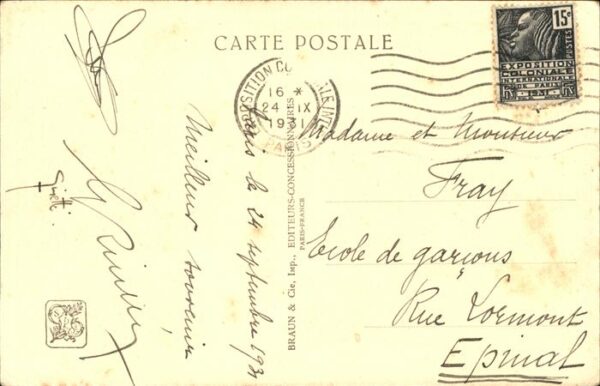 CARTE POSTALE
15c
POSTES
EXPOSITION
COLONIALE
INTERNATIONALE
PARIS
16 *
24 IX
1931
PARIS
BRAUN & Cie, Imp., EDITEURS-CONCESSIONNAIRES
PARIS-FRANCE
Paris le 24 septembre 1931
Meilleur souvenir
Madame et Monsieur
Fray
Ecole de garçons
Rue Lormont
Epinal